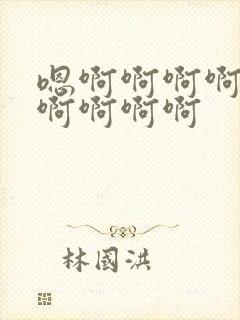 嗯啊啊啊啊
啊啊啊啊
林國洪